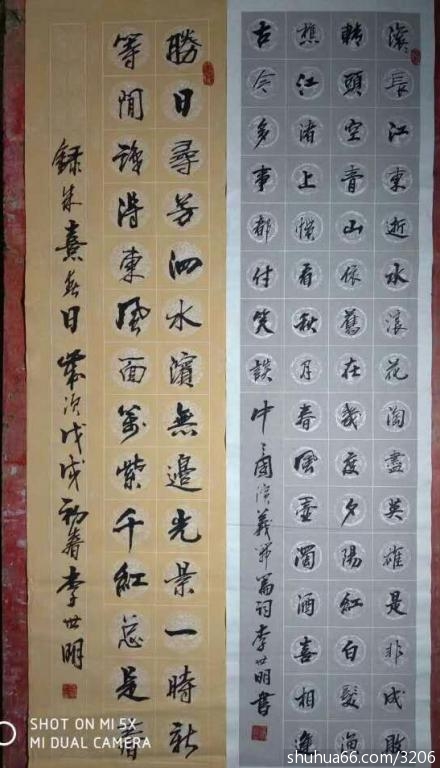 滚〻長江東逝水浪花淘盡英雄是非成敗
轉頭空青山依舊在幾度夕陽紅白髮漁
樵江渚上慣看秋月春風壺濁酒喜相逢
古今多事都付笑談中三國演義開篇詞李世明書
勝日尋芳泗水濱無邊光景一時新
等閒識得東風面萬紫千紅總是春
録朱熹春日歲次戊戌初春李世明
SHOT ON MI 5X
MI DUAL CAMERA
shuhua66.com/3206